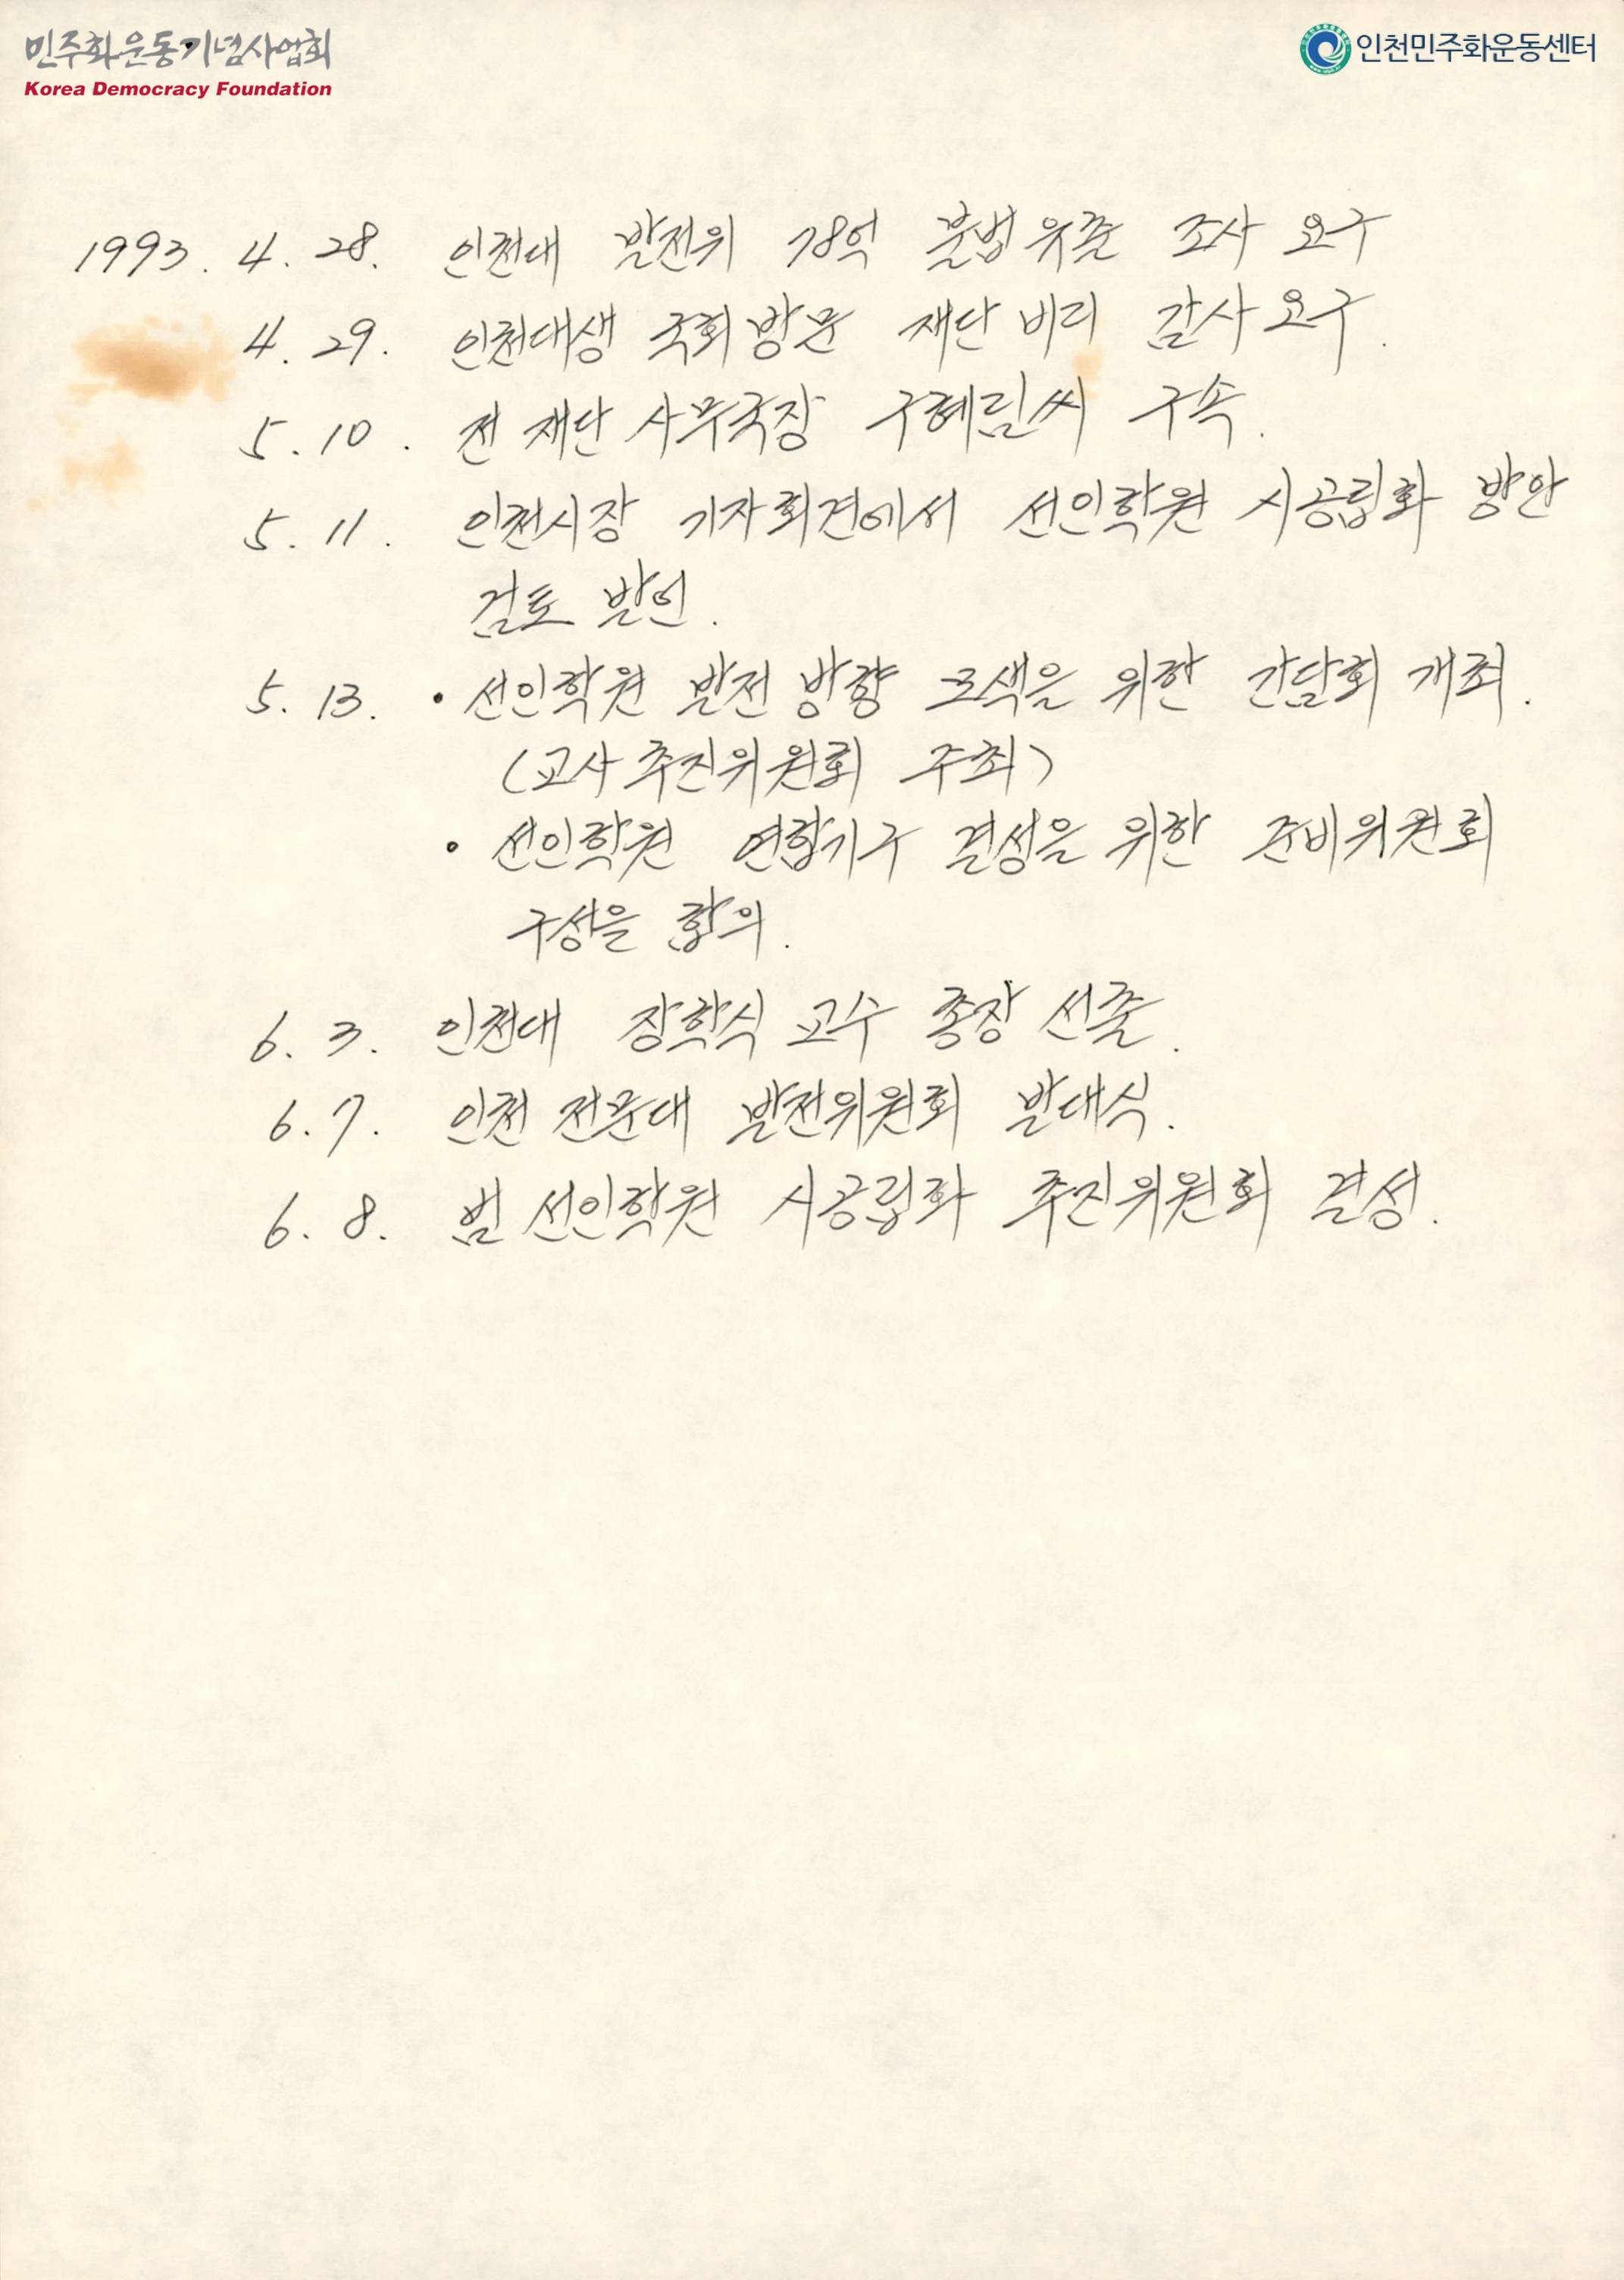 민주화운동기념사업회
Korea Democracy Foundation
인천민주화운동센터
1993. 4. 28. 인천대 발전위 78억 불법유출 조사 요구
4. 29. 인천대생 국회방문 재단 비리 감사요구.
5. 10. 전 재단 사무국장 구혜림씨 구속.
5. 11. 인천시장 기자회견에서 선인학원 시공립화 방안
검토 발언.
5. 13. • 선인학원 발전 방향 모색을 위한 간담회 개최.
(교사 추진위원회 주최)
• 선인학원 연합기구 결성을 위한 준비위원회
구성을 합의.
6. 3. 인천대 장학식 교수 총장 선출.
6. 7. 인천 전문대 발전위원회 발대식.
6. 8. 범 선인학원 시공립화 추진위원회 결성.